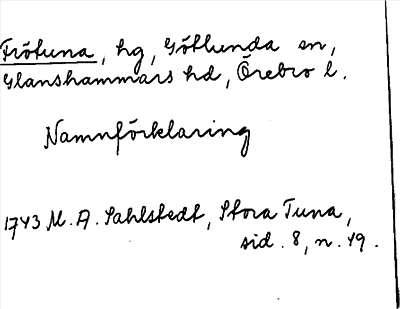 Frötuna, hg, Götlunda sn,
Glanshammars hd, Örebro l.
Namnförklaring
1743 M. A. Sahlstedt, Stora Tuna,
sid. 8, n. 49.